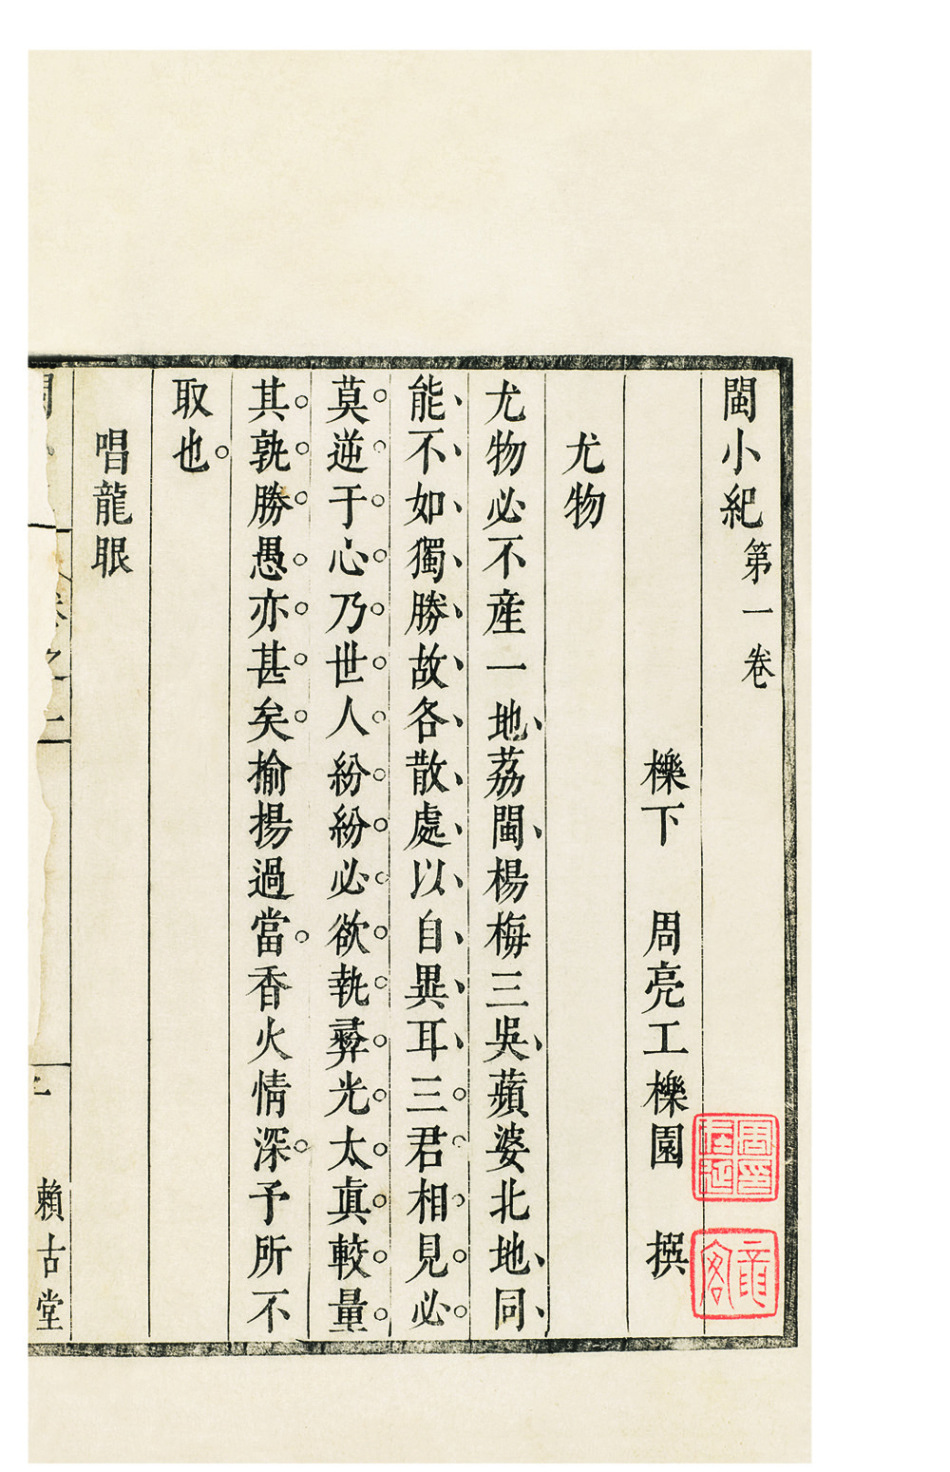 閩小紀第一卷
櫟下 周亮工櫟園 撰
尤物
尤物必不產一地荔閩楊梅三吳蘋婆北地同
能不如獨勝故各散處以自異耳三君相見必
莫逆于心乃世人紛紛必欲執彛光太真較量
其孰勝愚亦甚矣揄揚過當香火情深予所不
取也
唱龍眼
賴古堂